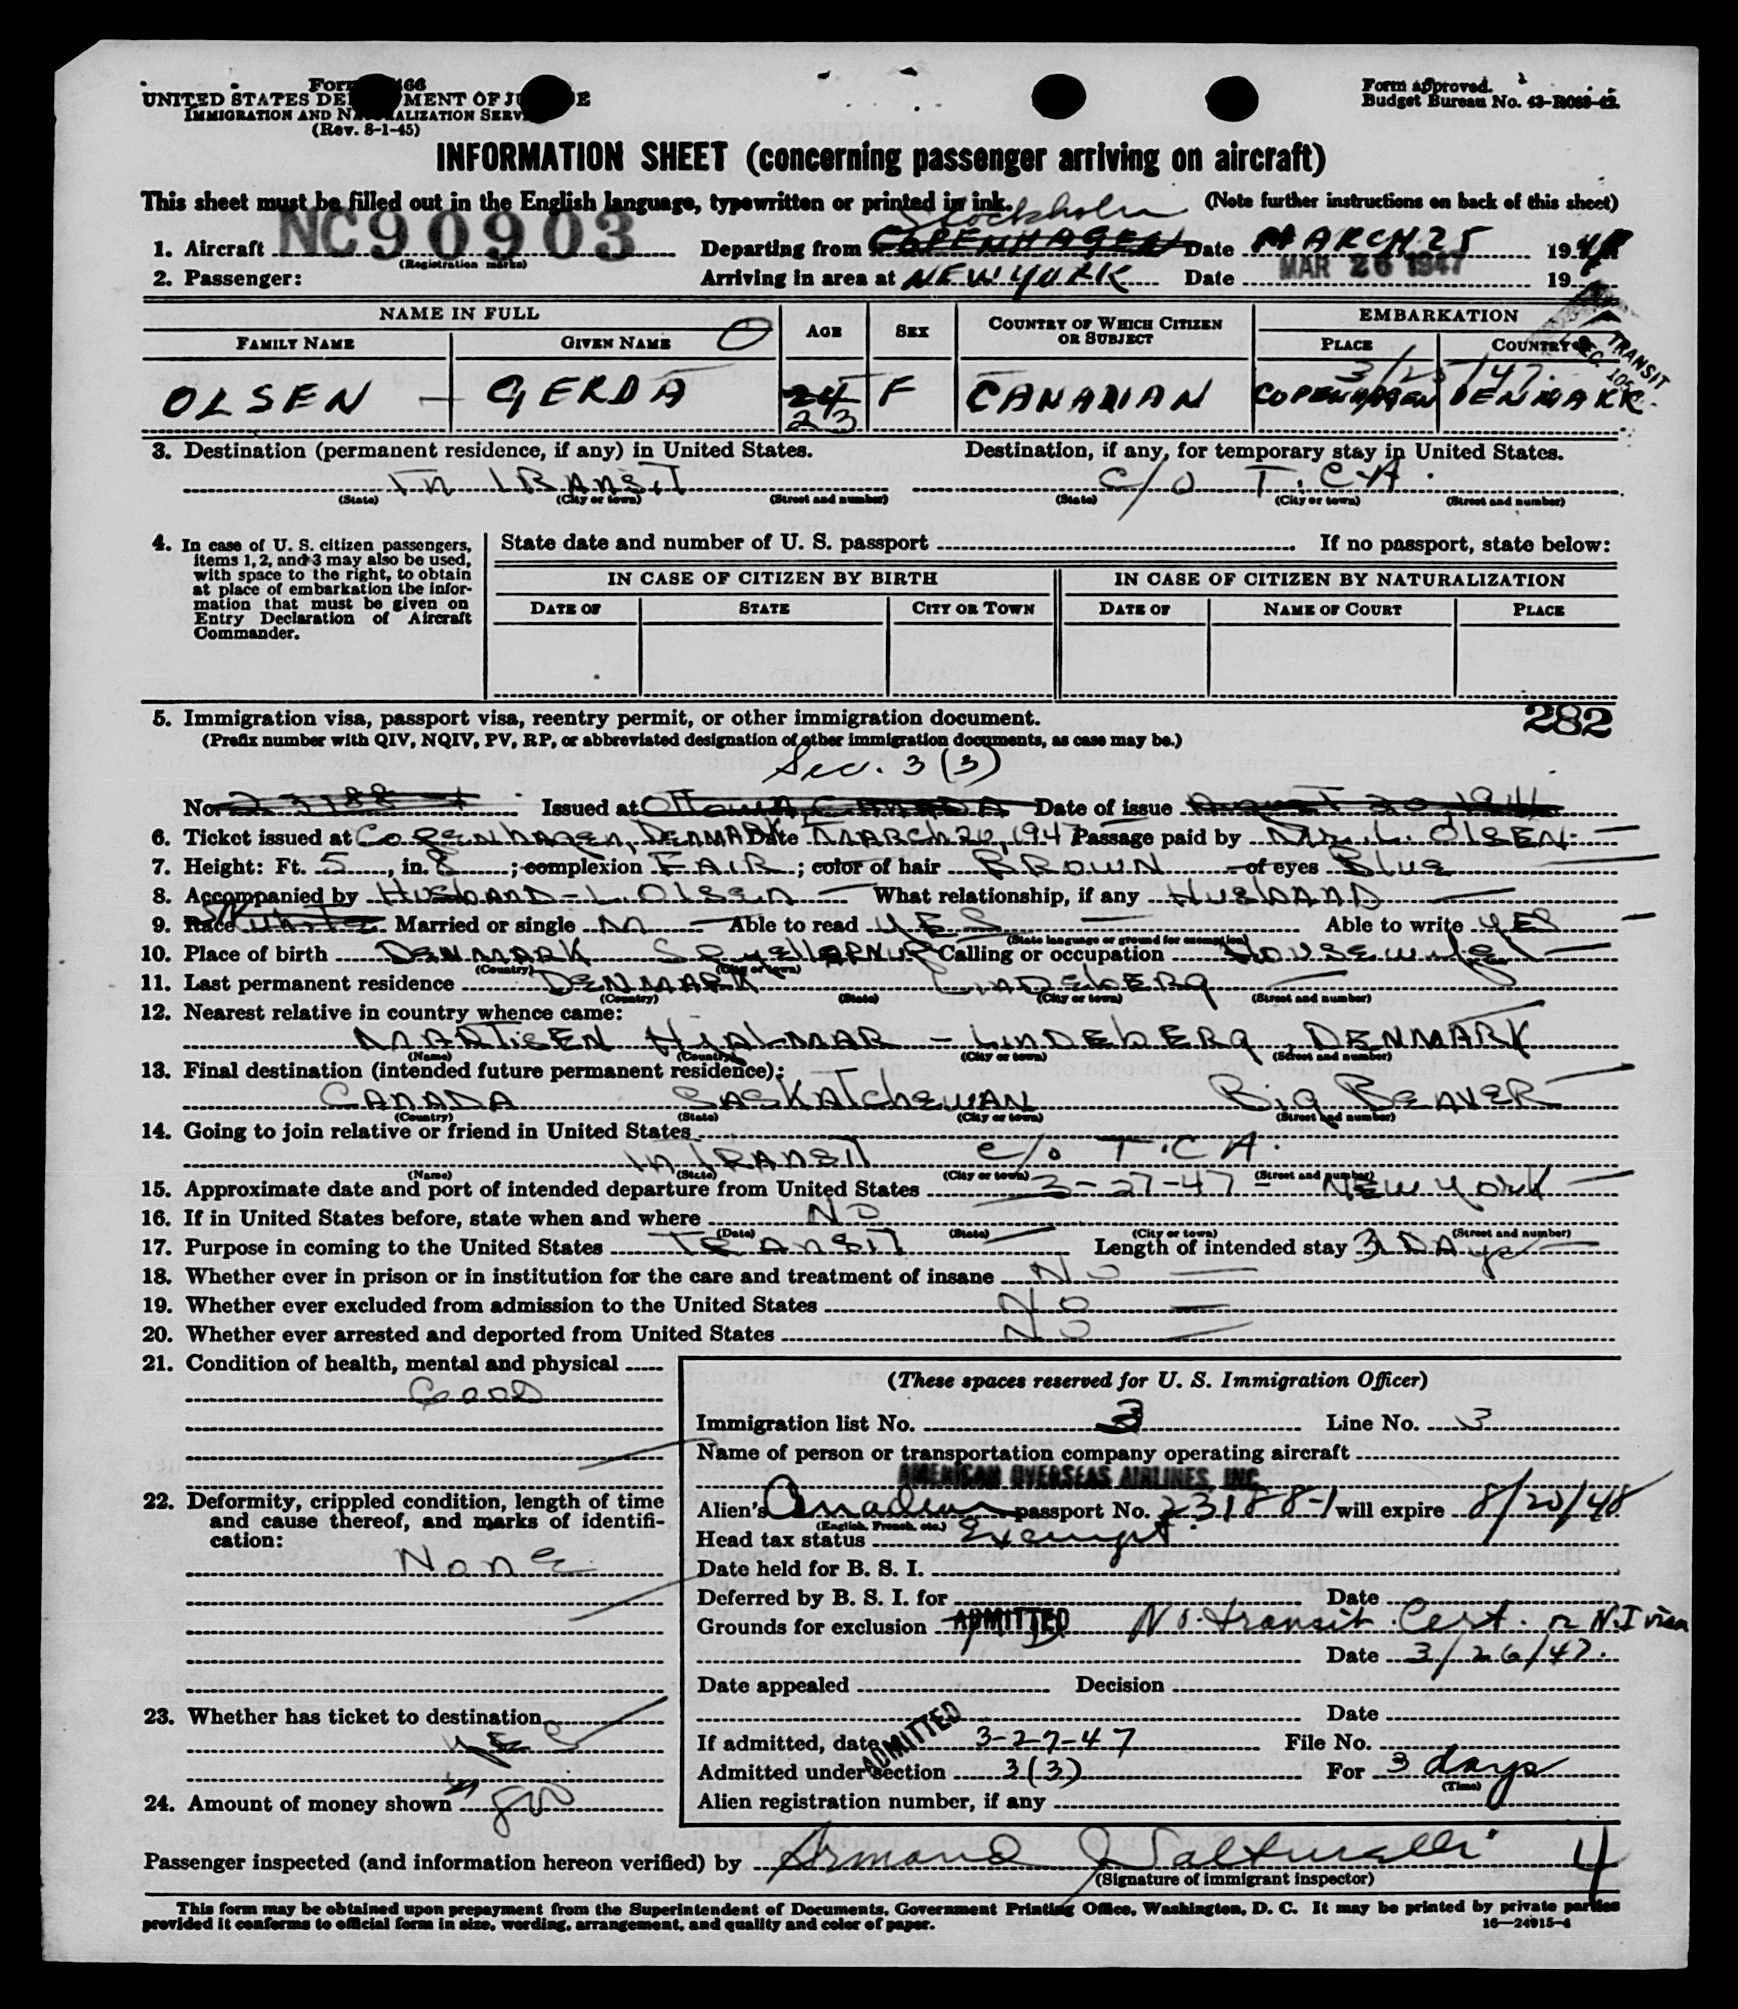 Form 466
UNITED STATES DEPARTMENT OF JUSTICE
IMMIGRATION AND NATURALIZATION SERVICE
(Rev. 8-1-45)
Form approved.
Budget Bureau No. 43-R063-42.
INFORMATION SHEET (concerning passenger arriving on aircraft)
This sheet must be filled out in the English language, typewritten or printed in ink. (Note further instructions on back of this sheet)
Stockholm
1. Aircraft NC90903 Departing from COPENHAGEN Date MARCH 25 1947
(Registration marks)
2. Passenger: Arriving in area at NEW YORK Date MAR 26 1947 19
NAME IN FULL AGE SEX COUNTRY OF WHICH CITIZEN OR SUBJECT EMBARKATION
FAMILY NAME GIVEN NAME PLACE COUNTRY
TRANSIT
SEC. 105
OLSEN - GERDA 24 F CANADIAN COPENHAGEN DENMARK
23
3. Destination (permanent residence, if any) in United States. Destination, if any, for temporary stay in United States.
In TRANSIT C/O T.C.A.
(State) (City or town) (Street and number) (State) (City or town) (Street and number)
4. In case of U. S. citizen passengers, items 1, 2, and 3 may also be used, with space to the right, to obtain at place of embarkation the information that must be given on Entry Declaration of Aircraft Commander.
State date and number of U. S. passport If no passport, state below:
IN CASE OF CITIZEN BY BIRTH IN CASE OF CITIZEN BY NATURALIZATION
DATE OF STATE CITY OR TOWN DATE OF NAME OF COURT PLACE
5. Immigration visa, passport visa, reentry permit, or other immigration document. 282
(Prefix number with QIV, NQIV, PV, RP, or abbreviated designation of other immigration documents, as case may be.)
Sec. 3 (3)
No. 23188-1 Issued at Ottawa, CANADA Date of issue August 20 1946
6. Ticket issued at COPENHAGEN, DENMARK Date MARCH 20, 1947 Passage paid by Mr. L. OLSEN
7. Height: Ft. 5, in. 8; complexion FAIR; color of hair BROWN of eyes Blue
8. Accompanied by HUSBAND - L. OLSEN What relationship, if any HUSBAND
9. Race White Married or single M Able to read YES Able to write YES
(State language or ground for exemption)
10. Place of birth DENMARK Calling or occupation Housewife
(Country) (City or town)
11. Last permanent residence DENMARK LINDEBERG
(Country) (State) (City or town) (Street and number)
12. Nearest relative in country whence came:
MADTSEN HJALMAR - LINDEBERG, DENMARK
(Name) (Country) (City or town) (Street and number)
13. Final destination (intended future permanent residence):
CANADA SASKATCHEWAN Big BEAVER
(Country) (State) (City or town) (Street and number)
14. Going to join relative or friend in United States
In TRANSIT c/o T.C.A.
(Name) (State) (City or town) (Street and number)
15. Approximate date and port of intended departure from United States 3-27-47 - NEW York
16. If in United States before, state when and where NO
(Date) (State) (City or town) (Street and number)
17. Purpose in coming to the United States TRANSIT Length of intended stay 3 DAys
18. Whether ever in prison or in institution for the care and treatment of insane NO
19. Whether ever excluded from admission to the United States NO
20. Whether ever arrested and deported from United States NO
21. Condition of health, mental and physical
Good
22. Deformity, crippled condition, length of time and cause thereof, and marks of identification:
None
23. Whether has ticket to destination
yes
24. Amount of money shown
(These spaces reserved for U. S. Immigration Officer)
Immigration list No. 3 Line No. 3
Name of person or transportation company operating aircraft
AMERICAN OVERSEAS AIRLINES, INC
Alien's Canadian passport No. 23188-1 will expire 8/20/48
(English, French, etc.)
Head tax status Exempt
Date held for B. S. I.
Deferred by B. S. I. for Date
Grounds for exclusion ADMITTED No transit Cert. or N.I visa
Date 3/26/47.
Date appealed Decision
Date
If admitted, date ADMITTED 3-27-47 File No.
Admitted under section 3(3) For 3 days
(Time)
Alien registration number, if any
Passenger inspected (and information hereon verified) by Armand 4
(Signature of immigrant inspector)
This form may be obtained upon prepayment from the Superintendent of Documents, Government Printing Office, Washington, D. C. It may be printed by private parties
provided it conforms to official form in size, wording, arrangement, and quality and color of paper. 16—24915-4